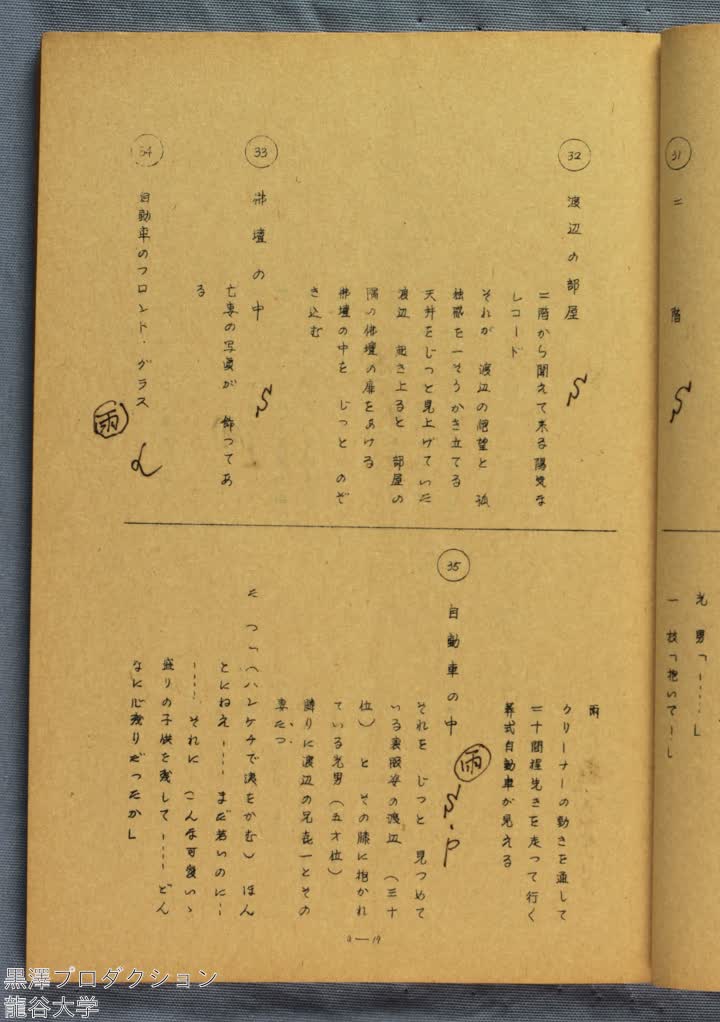 31
二階
光男「……」
一枝「抱いて──」
32
渡辺の部屋
二階から聞えて来る陽気な
レコード
それが 渡辺の絶望と 孤
独感を一そうかき立てる
天井をじっと見上げていた
渡辺 起き上ると 部屋の
隅の佛壇の扉をあける
佛壇の中を じっと のぞ
き込む
33
佛壇の中
亡妻の写真が 飾ってあ
る
34
自動車のフロンド・グラス
雨
雨
クリーナーの動きを通して
二十間程先きを走って行く
葬式自動車が見える
35
自動車の中
雨
S.P
それを じっと 見つめて
いる喪服姿の渡辺 (三十
位) と その膝に抱かれ
ている光男(五才位)
隣りに渡辺の兄喜一とその
妻たつ
たつ「(ハンケチで洟をかむ)ほん
とにねえ…… まだ若いのに…
…… それに こんな可愛いゝ
盛りの子供を残して…… どん
なに心残りだったか」
a—19
黒澤プロダクション
龍谷大学